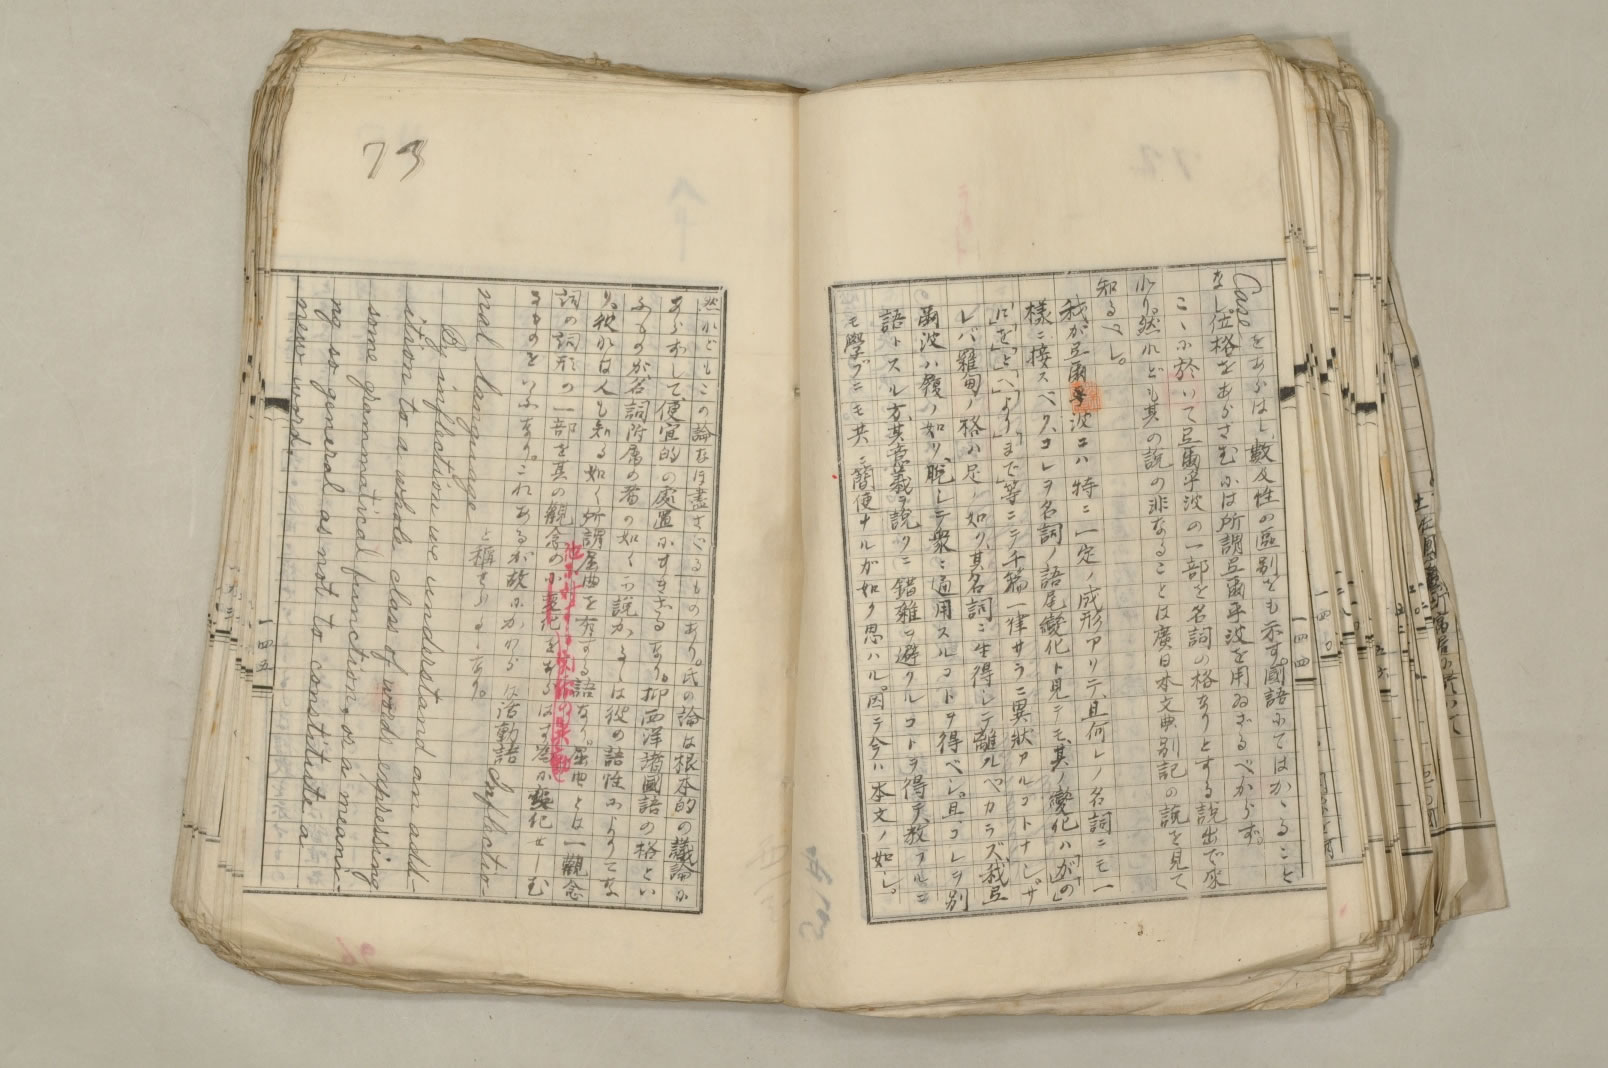 Caseをあらはし、數及性の區別をも示す。國語にてはかゝること
なし。位格をあらざむには所謂弖爾乎波を用ゐざるべからず。
こゝに於いて弖爾乎波の一部を名詞の格なりとする説出で來
れり。然れども其の説の非なることは廣日本文典別記の説を見て
知るべし。
我が弖爾乎波ニハ特ニ一定ノ成形アリテ、且何レノ名詞ニモ一
樣ニ接スベク、コレヲ名詞ノ語尾變化ト見テモ、其ノ變化ハ「が」「の」
「に」「を」「と」「へ」「より」「まで」等ニテ千篇一律サラニ異狀アルコトナシ。サ
レバ羅甸ノ格ハ足ノ如ク、其名詞ニ生得シテ離ルベカラズ、我弖
爾波ハ履ノ如ク、脱シテ衆ニ通用スルコトヲ得ベシ。且コレヲ別
語トスル方、其意義ヲ説クニ錯雜ヲ避クルコトヲ得テ、教フルニ
モ學ブニモ共ニ簡便ナルガ如ク思ハル。因テ今ハ本文ノ如シ。
一四四
73
然れどもこの論なほ盡さゞるものあり。氏の論は根本的の議論に
あらずして、便宜的の處置にすぎざるなり。抑西洋諸國語の格とい
ふものが、名詞附屬の者の如くに説かるゝは彼の語性によりてな
り。彼には人も知る如く所謂屈曲を有する語なり。屈曲とは一觀念
詞の詞形の一部を其の觀念の
るものをいふなり。これあるが故にかれらは活動語 Inflectio-
nal language と稱せらるゝなり。
By inflection we understand an add-
ition to a whole class of words expressing
some grammatical function, or a meani-
ng so general as not to constitute a
new word.
一四五